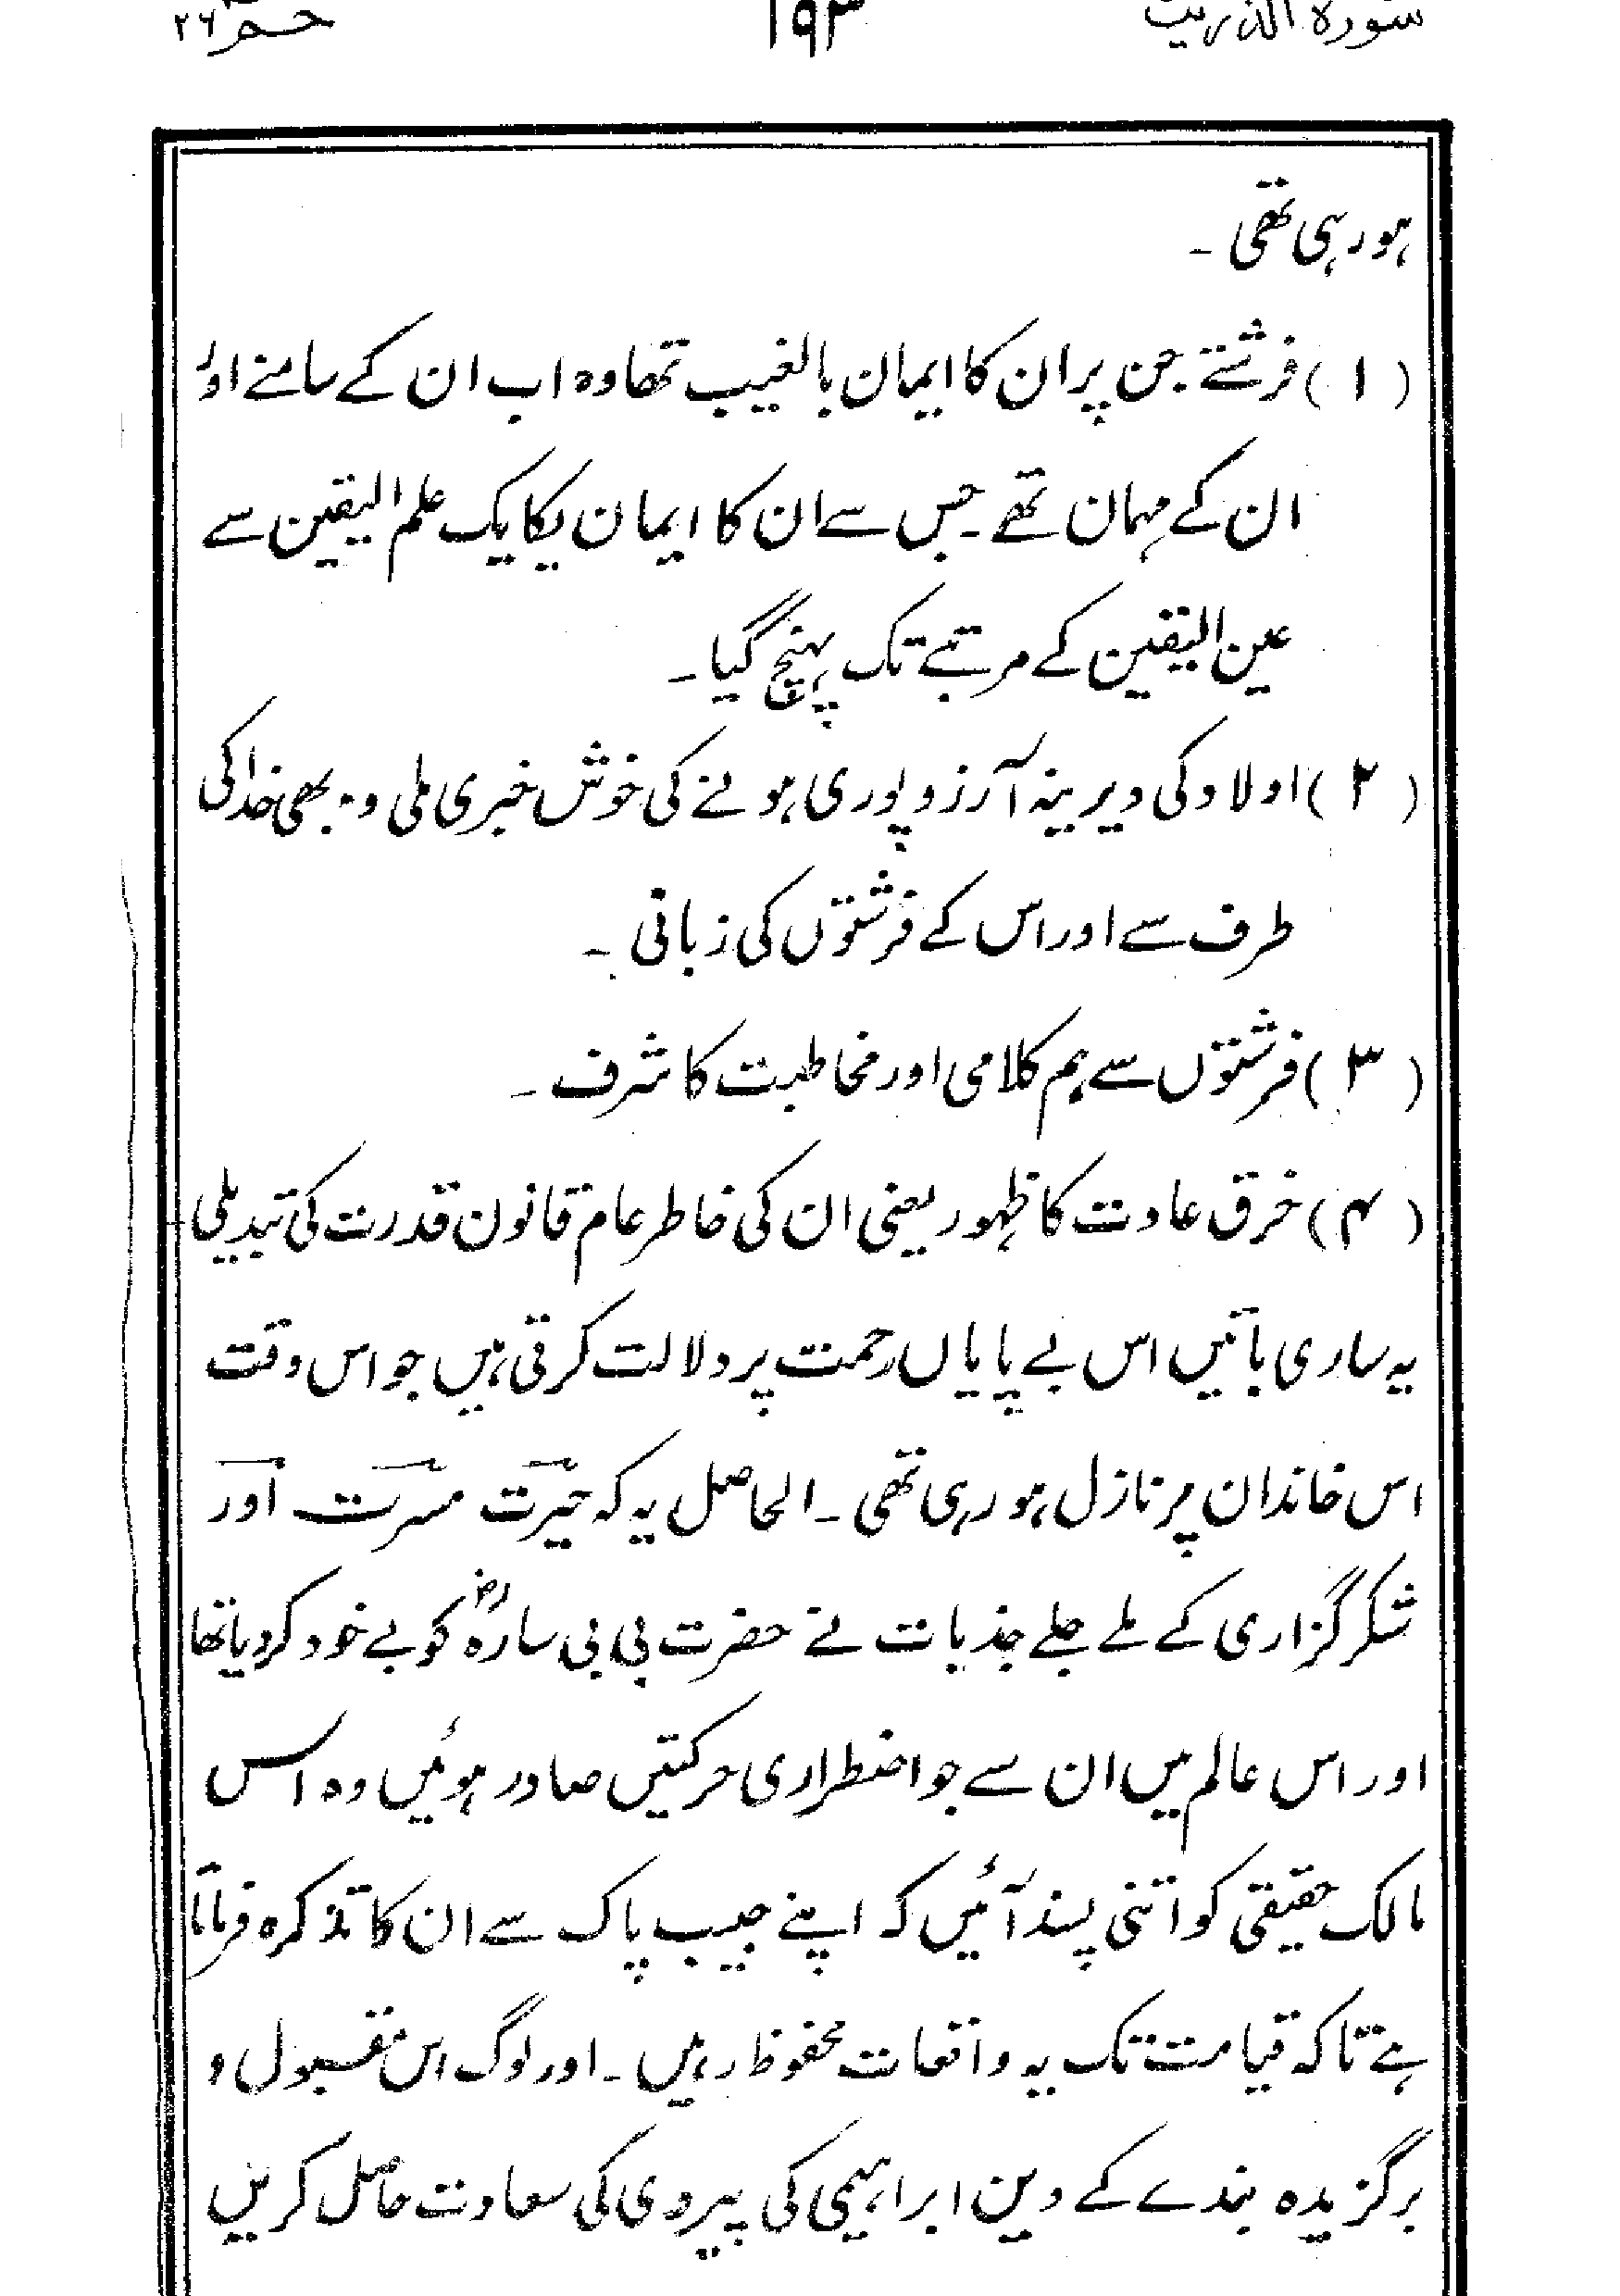 سورہ الذریت ۱۹۳ حم ۲۶
ہورہی تھی ۔
(۱) فرشتے جن پر ان کا ایمان بالغیب تھا وہ اب ان کے سامنے اور
ان کے مہمان تھے ۔ جس سے ان کا ایمان یکایک علم الیقین سے
عین الیقین کے مرتبے تک پہنچ گیا ۔
(۲) اولاد کی دیرینہ آرزو پوری ہونے کی خوش خبری ملی وہ بھی خدا کی
طرف سے اور اس کے فرشتوں کی زبانی ۔
(۳) فرشتوں سے ہم کلامی اور مخاطبت کا شرف ۔
(۴) خرق عادت کا ظہور یعنی ان کی خاطر عام قانون قدرت کی تبدیلی
یہ ساری باتیں اس بے پایاں رحمت پر دلالت کرتی ہیں جو اس وقت
اس خاندان پر نازل ہورہی تھی ۔ الحاصل یہ کہ حیرت مسرت اور
شکر گزاری کے ملے جلے جذبات نے حضرت بی بی سارہؓ کو بے خود کردیا تھا
اور اس عالم میں ان سے جو اضطراری حرکتیں صادر ہوئیں وہ اس
مالک حقیقی کو اتنی پسند آئیں کہ اپنے حبیب پاک سے ان کا تذکرہ فرماتا
ہے تاکہ قیامت تک یہ واقعات محفوظ رہیں ۔ اور لوگ اس مقبول و
برگزیدہ بندے کے دین ابراہیمی کی پیروی کی سعادت حاصل کریں